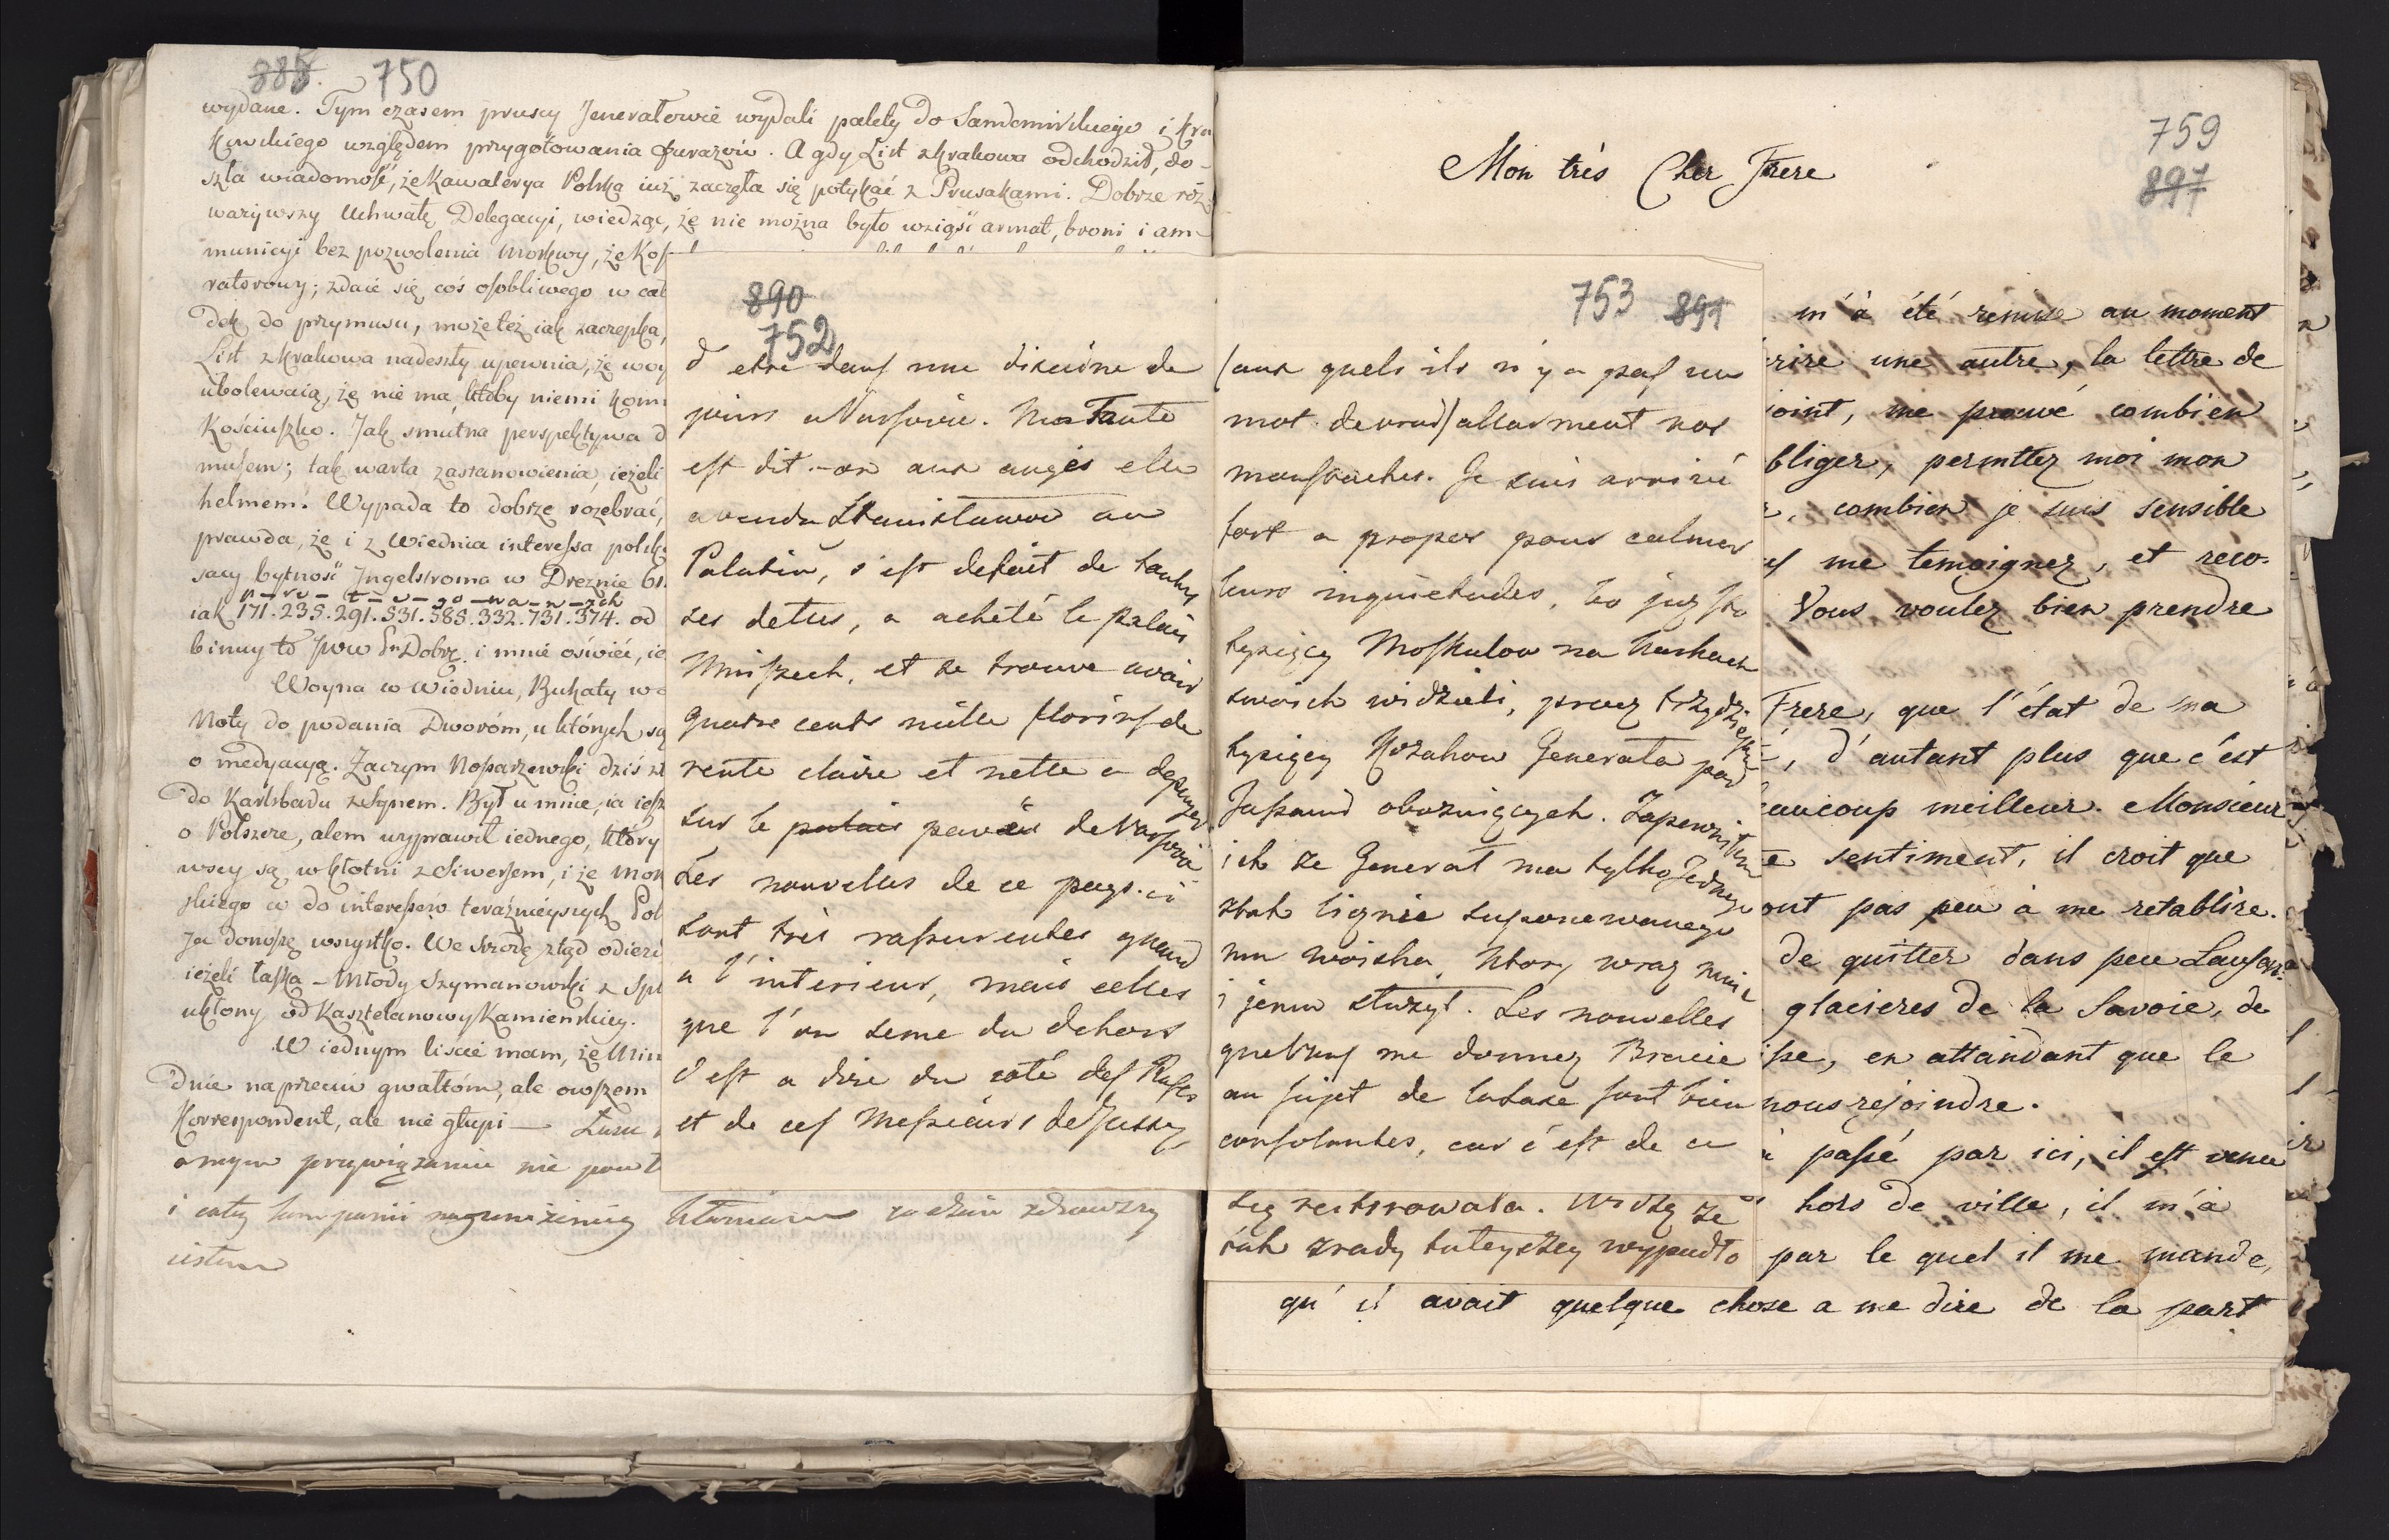 888. 750
wydane. Tym czasem pruscy Jenerałowie wydali palety do Sandomirskiego i Kra
kowskiego względem przygotowania furażów. A gdy List z Krakowa odchodził, do-
szła wiadomość, że Kawalerya Polska iuż zaczęła się potykać z Prusakami. Dobrze roz
warzywszy Uchwałę Delegacyi, wiedząc, że nie można było wziąść armat, broni i am-
municyi bez pozwolenia Moskwy, że Kos
ratorowy; zdaie się coś osobliwego w cał
dek do przymusu, może też iak zaczepka,
List z Krakowa nadeszły upewnia, że woy
ubolewaią, że nie ma, ktoby niemi kom
Kościuszko. Jak smutna perspektywa d
musem; tak warta zastanowienia, ieżeli
helmem. Wypada to dobrze rozebrać,
prawda, że i z Wiednia interessa polsk
sący bytność Ingelstroma w Dreznie
iak 171. 235. 291. 531. 585. 332. 731. 374. od
binuy to Dobrz. i mnie oświeć, ie
Woyna w Wiedniu, Bukaty w
Noty do podania Dworóm, u których są
o medyacyą. Zaczym Moszczeński dziś
do Karlsbadu z synem. Był u mnie, ia
o Polszcze, alem wyprawił iednego, który
wscy są w kłotni z Siwersem, i że Mos
skiego w do interessów teraźnieyszych Pol
Ja donoszę wszystko. We Srzodę ztąd odiezd
ieżeli łaska – Młody Szymanowski z
ukłony od Kasztelanowy Kamieńskiey.
W iednym liscie mam, że
dnie naprzeciw gwałtóm, ale owszem
Korrespondent, ale nie głupi —
przywiązaniu nie
i całey kompanii zdrowszy
890
752
d'etre dans une dixaine de
jours a Varsovie. Ma Tante
est dit-on aux anges elle
a vendu Stanisławow au
Palatin, s'est defait de toutes
ses dettes, a acheté le palais
Mniszech, et se trouve avoir
quatre cents mille florins de
rente claire et nette a depenser
sur le palais pavée de Varsovie
Les nouvelles de ce pays-ci
sont très rassurentes quand
a l'interieur, mais celles
que l'on seme du dehors
c'est a dire du coté des Russes
et de ces Messieurs de Jassy
753 891
(aux quels ils n'y a pas un
mot de vrai) allarment nos
moustaches. Je suis arrivé
fort a propos pour calmer
leurs inquietudes, bo już sto
tysięcy Moskalow na karkach
swoich widzieli, procz trzydziestu
tysięcy Kozakow Generała pod
Jassami obozuiących. Zapewniłem
ich ze Generał ma tylko jednego
licznie
woiska, ktory wraz mnie
i jemu służył. Les nouvelles
que Vous me donnez Bracie
au sujet de la taxe sont bien
consolantes, car c'est de ce
się Widzę ze
iak zrady tuteyszey wypadło
759
897
Mon très Cher Frere
m'à été remise au moment
rire une autre, la lettre de
joint, me prouve combien
bliger, permttez moi mon
combien je suis sensible
me temoignez, et reco-
Vous voulez bien prendre
Frere, que l'état de ma
d'autant plus que c'est
eaucoup meilleur. Monsieur
e sentiment, il croit que
ont pas peu à me retablire.
de quitter dans peu Lausan
glacieres de la Savoie, de
sse, en attandant que le
nous rejoindre.
passé par ici, il est venu
hors de ville, il m'a
par le quel il me mande,
qu'il avait quelque chose a me dire de la part